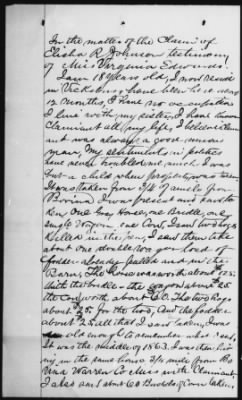 In the matter of the Claim of
Elisha R Johnson testimony
of Miss Virginia Edwards
I am 18 years old, I now reside
in Vicksburg have been here
12 months, I have no occupation
I live with my sister, I have known
Claimant all my life, I believe
was always a good union
man, My sentiments in politics
have never troubled me much I was
but a child when property was taken
It was taken from 3/4 of a mile from
Bovina I was present and saw ta
ken one Gray Horse, one Bridle, one
single wagon one Cow, I saw two hogs
killed in the pen I saw them take
about one double two horse load of
fodder already pulled and in the
Barn. The Horse was worth about $175
with the bridle - the wagon about $25
the Cow worth about $60. The two hogs
about $25 for the two, and the fodder
about $25 all that I saw taken, I was
old enough to remember what I said,
It was the middle of 1863. I was then liv
ing in the same house 3/4 mile from Bo
vina Warren Co Miss with Claimant,
I also saw about 60 Bushels of Corn taken,